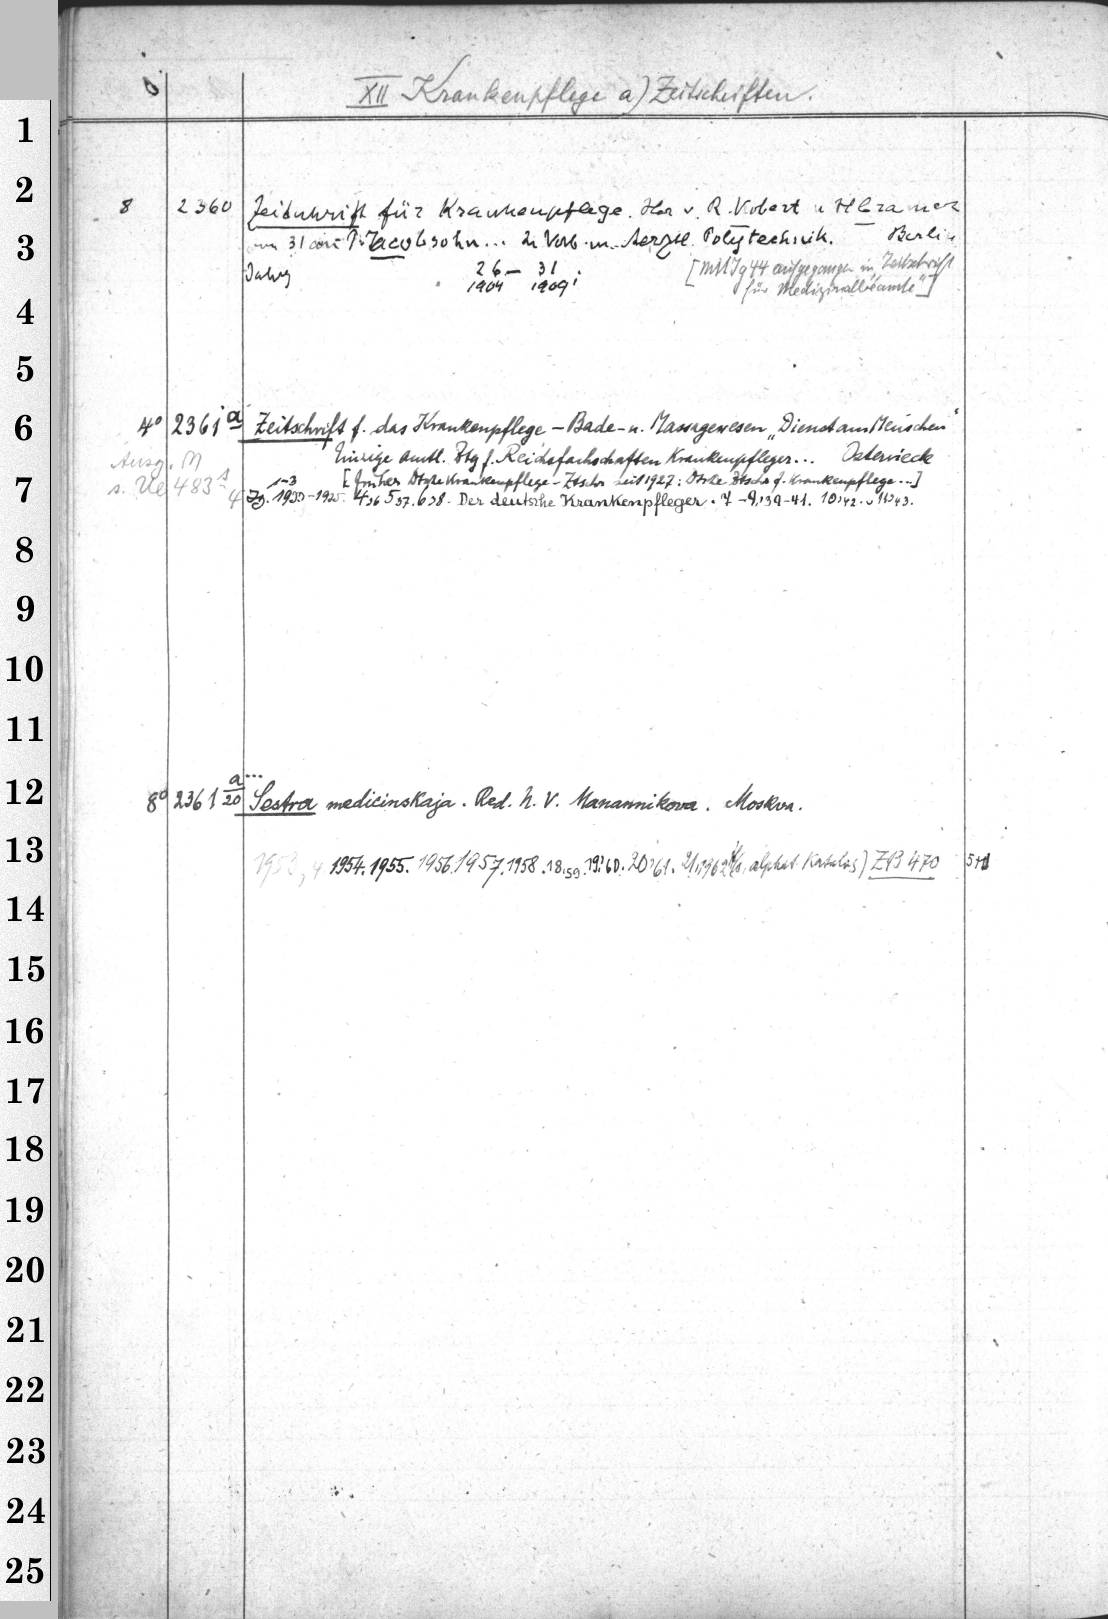 XII Krankenpflege a) Zeitschriften.
1
2
8 2360 Zeitschrift für Krankenpflege. Hsg v. R. Kobert u M Cramer
3
31 P. Jacobsohn... In Verb. m. Aerztl. Polytechnik. Berlin
Jahrg 26 – 31 [Mit Jg 44 aufgegangen in „Zeitschrift
1904 1909 für Medizinalbeamte"]
4
5
6
4° 2361 a Zeitschrift f. das Krankenpflege – Bade- u. Massagewesen „Dienst am Menschen"
Einzige amtl. Ztg f. Reichsfachschaften Krankenpfleger... Osterwieck
Ausg. M
7
s. Ue 483 [früher Dtsche Krankenpflege-Ztschr seit 1927: Dtsche Ztschr f. Krankenpflege...]
Jg. 1-3 1933-1935. 4,36 5,37. 6,38. Der deutsche Krankenpfleger. 7-9,39-41. 10,42. 11,43.
8
9
10
11
12
8° 2361 a/20 Sestra medicinskaja. Red. N. V. Manannikova. Moskva.
13
1953, 1954. 1955. 1956. 1957. 1958. 18,59. 19,60. 20,61. 21,1962 alphat. Katalog) ZB 470
14
15
16
17
18
19
20
21
22
23
24
25